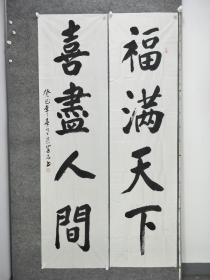 福满天下
喜盡人間